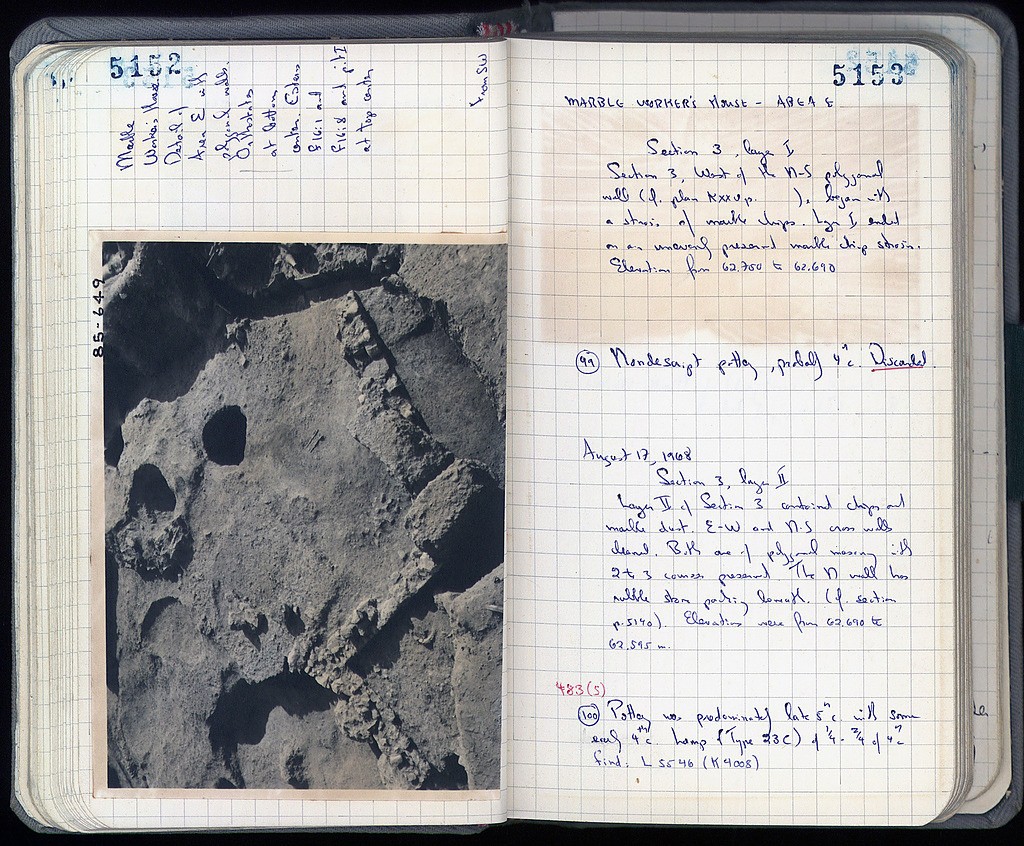 5152
Marble
Worker's House
Detail of
Area E with
polygonal walls.
Orthostates
at bottom
center. Cisterns
E16:1 and
E16:8 and pit I
at top center
From SW
85-649
5153
MARBLE WORKER'S HOUSE - AREA E
Section 3, layer I
Section 3, West of the N-S polygonal
wall (cf. plan p. ), began with
a strosis of marble chips. Layer I ended
on an unevenly preserved marble chip strosis.
Elevation from 62.750 to 62.690
99 Nondescript pottery, probably 4th c. Discarded.
August 17, 1968
Section 3, layer II
Layer II of Section 3 contained chips and
marble dust. E-W and N-S cross walls
cleaned. Both are of polygonal masonry with
2 to 3 courses preserved. The N wall has
rubble stone packing beneath. (cf. section
p. 5140). Elevations were from 62.690 to
62.595 m.
483(5)
100 Pottery was predominately late 5th c. with some
early 4th c. Lamp (Type 23C) of 1/4 - 3/4 of 4th c.
find. L 5546 (K4008)